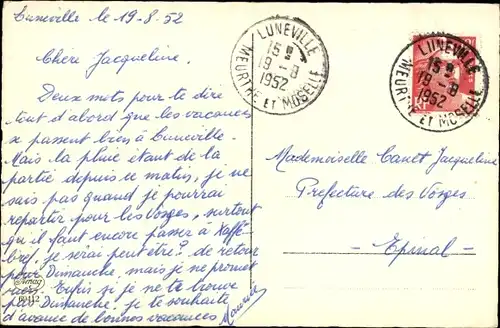 Luneville le 19-8-52
Chère Jacqueline.
Deux mots pour te dire
tout d'abord que les vacances
se passent bien à Luneville.
Mais la pluie étant de la
partie depuis ce matin, je ne
sais pas quand je pourrai
repartir pour les Vosges, surtout
qu'il faut encore passer à
je serai peut être? de retour
pour Dimanche, mais je ne promet
rien. Enfin si je ne te trouve
pas Dimanche, je te souhaite
d'avance de bonnes vacances
LUNEVILLE
15 H
19 -8
1952
MEURTHE ET MOSELLE
LUNEVILLE
15 H
19 -8
1952
MEURTHE ET MOSELLE
Mademoiselle Canet Jacqueline
Prefecture des Vosges
- Epinal -